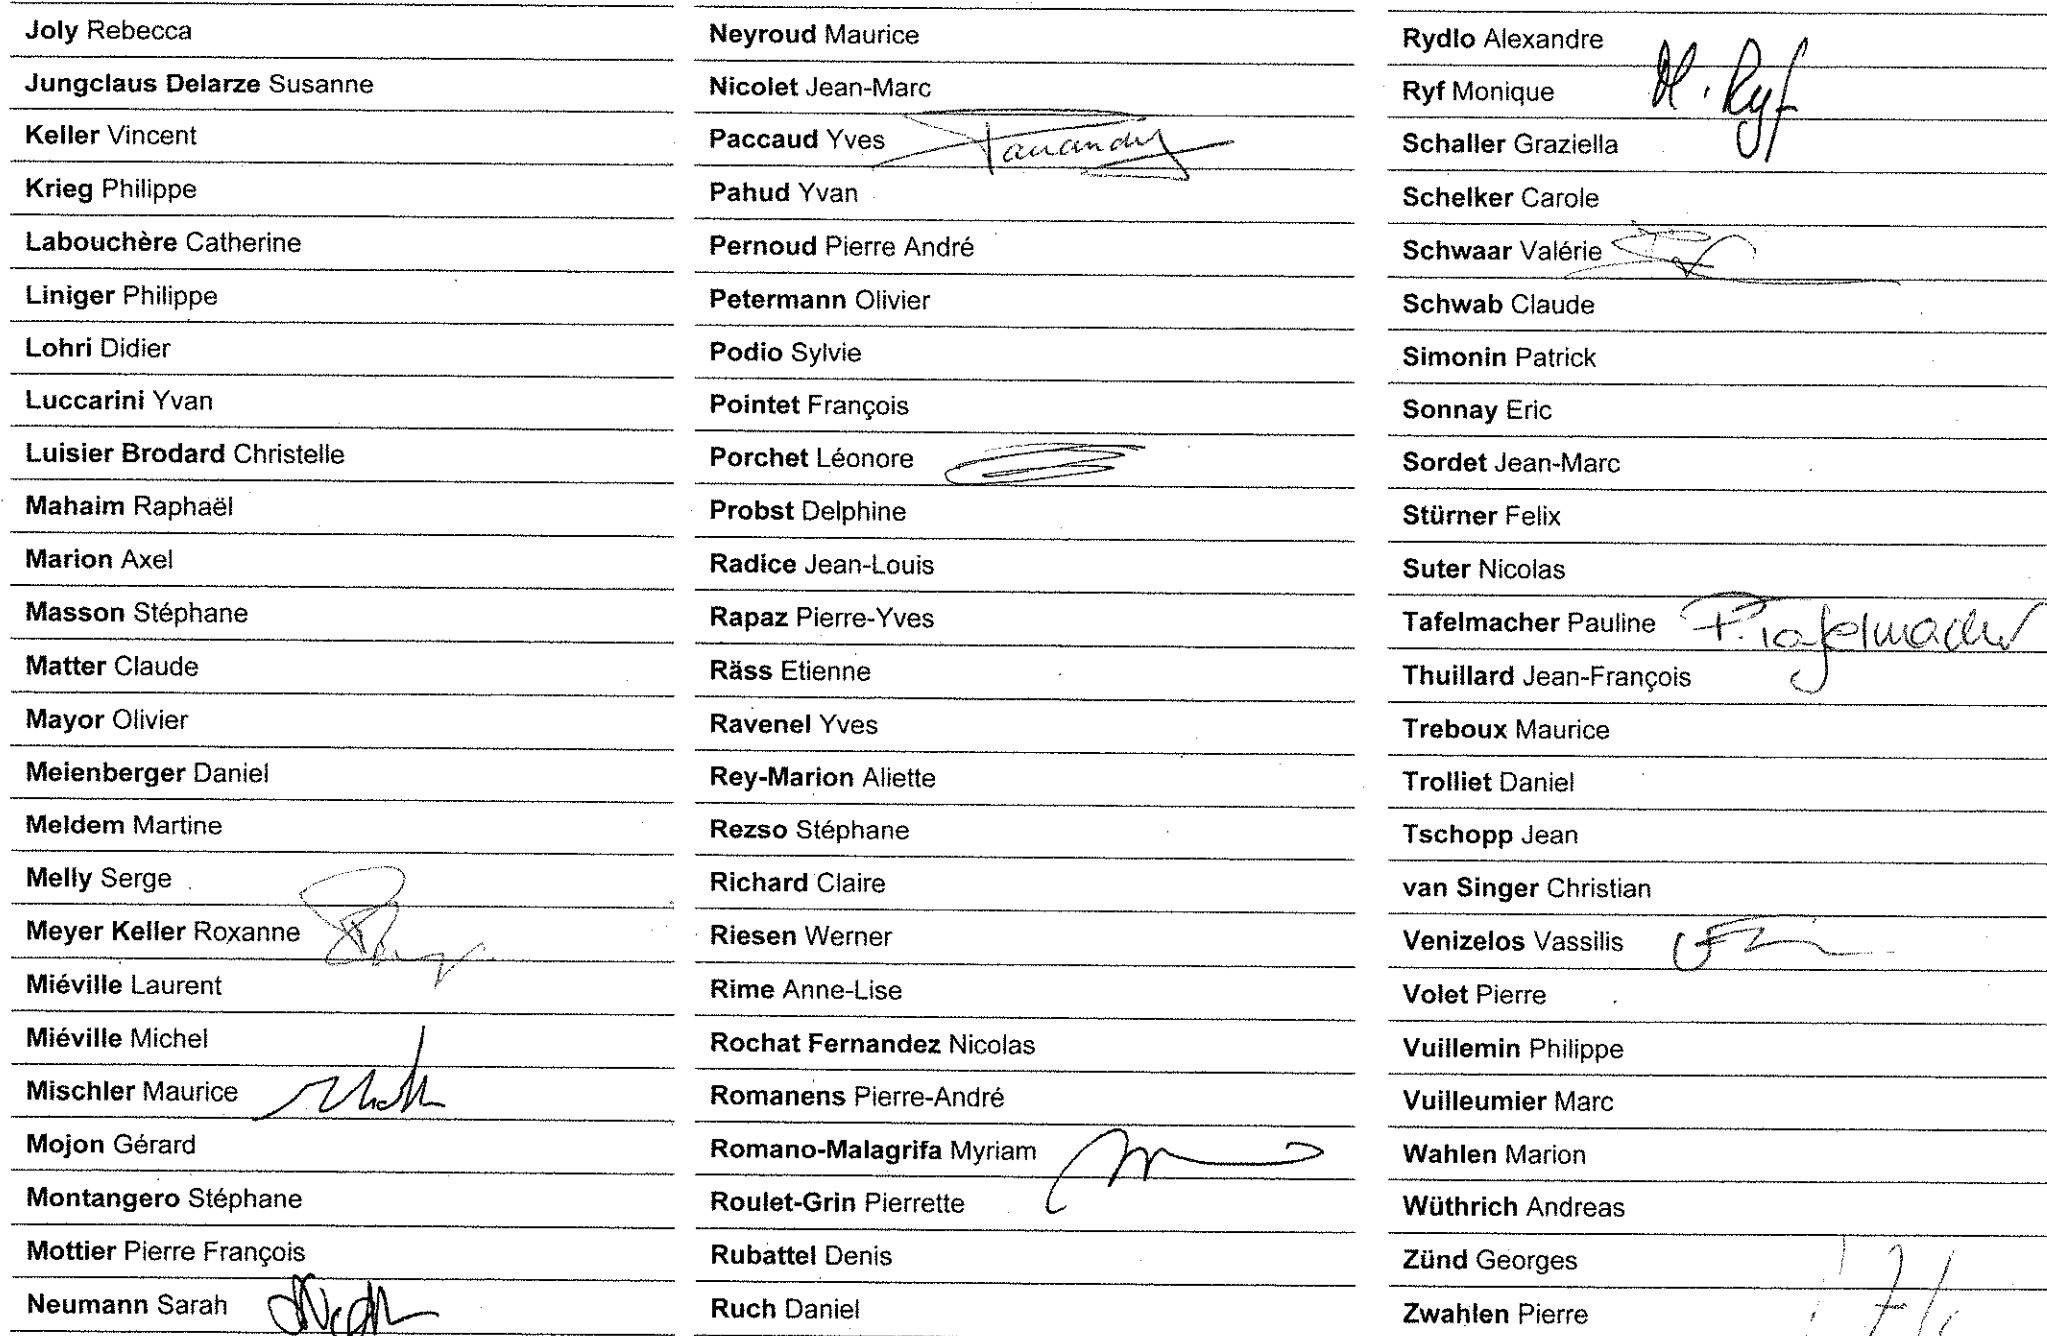 Joly Rebecca
Jungclaus Delarze Susanne
Keller Vincent
Krieg Philippe
Labouchère Catherine
Liniger Philippe
Lohri Didier
Luccarini Yvan
Luisier Brodard Christelle
Mahaim Raphaël
Marion Axel
Masson Stéphane
Matter Claude
Mayor Olivier
Meienberger Daniel
Meldem Martine
Melly Serge
Meyer Keller Roxanne
Miéville Laurent
Miéville Michel
Mischler Maurice
Mojon Gérard
Montangero Stéphane
Mottier Pierre François
Neumann Sarah
Neyroud Maurice
Nicolet Jean-Marc
Paccaud Yves
Pahud Yvan
Pernoud Pierre André
Petermann Olivier
Podio Sylvie
Pointet François
Porchet Léonore
Probst Delphine
Radice Jean-Louis
Rapaz Pierre-Yves
Räss Etienne
Ravenel Yves
Rey-Marion Aliette
Rezso Stéphane
Richard Claire
Riesen Werner
Rime Anne-Lise
Rochat Fernandez Nicolas
Romanens Pierre-André
Romano-Malagrifa Myriam
Roulet-Grin Pierrette
Rubattel Denis
Ruch Daniel
Rydlo Alexandre
Ryf Monique M. Ryf
Schaller Graziella
Schelker Carole
Schwaar Valérie
Schwab Claude
Simonin Patrick
Sonnay Eric
Sordet Jean-Marc
Stürner Felix
Suter Nicolas
Tafelmacher Pauline P. Tafelmacher
Thuillard Jean-François
Treboux Maurice
Trolliet Daniel
Tschopp Jean
van Singer Christian
Venizelos Vassilis
Volet Pierre
Vuillemin Philippe
Vuilleumier Marc
Wahlen Marion
Wüthrich Andreas
Zünd Georges
Zwahlen Pierre